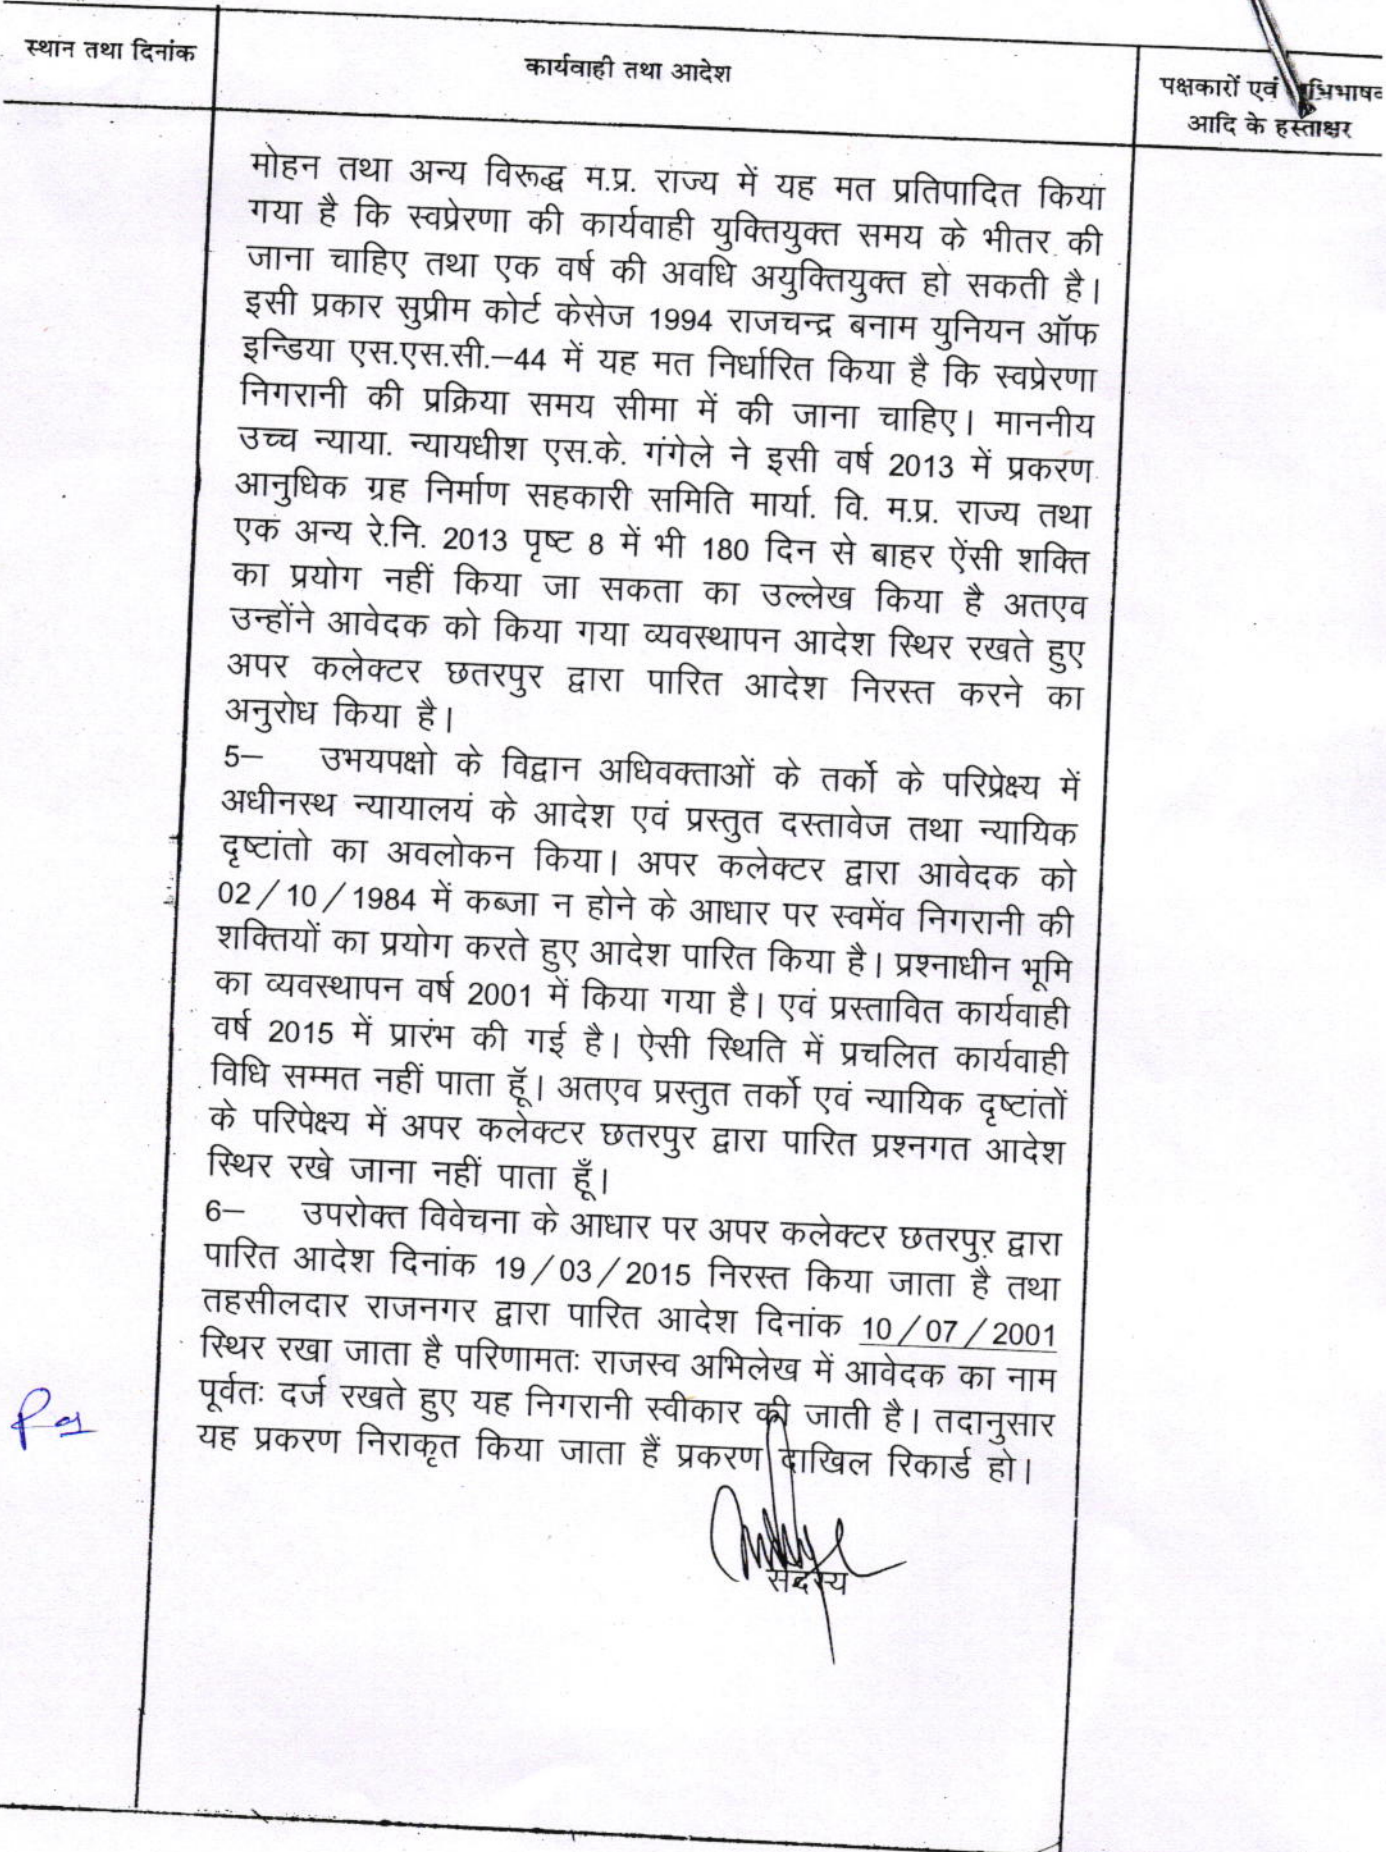 स्थान तथा दिनांक
कार्यवाही तथा आदेश
पक्षकारों एवं
आदि के हस्ताक्षर
मोहन तथा अन्य विरूद्ध म.प्र. राज्य में यह मत प्रतिपादित किया
गया है कि स्वप्रेरणा की कार्यवाही युक्तियुक्त समय के भीतर की
जाना चाहिए तथा एक वर्ष की अवधि अयुक्तियुक्त हो सकती है।
इसी प्रकार सुप्रीम कोर्ट केसेज 1994 राजचन्द्र बनाम युनियन ऑफ
इन्डिया एस.एस.सी.–44 में यह मत निर्धारित किया है कि स्वप्रेरणा
निगरानी की प्रक्रिया समय सीमा में की जाना चाहिए। माननीय
उच्च न्याया. न्यायधीश एस.के. गंगेले ने इसी वर्ष 2013 में प्रकरण
आनुधिक ग्रह निर्माण सहकारी समिति मार्या. वि. म.प्र. राज्य तथा
एक अन्य रे.नि. 2013 पृष्ट 8 में भी 180 दिन से बाहर ऐंसी शक्ति
का प्रयोग नहीं किया जा सकता का उल्लेख किया है अतएव
उन्होंने आवेदक को किया गया व्यवस्थापन आदेश स्थिर रखते हुए
अपर कलेक्टर छतरपुर द्वारा पारित आदेश निरस्त करने का
अनुरोध किया है।
5– उभयपक्षो के विद्वान अधिवक्ताओं के तर्को के परिप्रेक्ष्य में
अधीनस्थ न्यायालयं के आदेश एवं प्रस्तुत दस्तावेज तथा न्यायिक
दृष्टांतो का अवलोकन किया। अपर कलेक्टर द्वारा आवेदक को
02/10/1984 में कब्जा न होने के आधार पर स्वमेंव निगरानी की
शक्तियों का प्रयोग करते हुए आदेश पारित किया है। प्रश्नाधीन भूमि
का व्यवस्थापन वर्ष 2001 में किया गया है। एवं प्रस्तावित कार्यवाही
वर्ष 2015 में प्रारंभ की गई है। ऐसी स्थिति में प्रचलित कार्यवाही
विधि सम्मत नहीं पाता हूॅ। अतएव प्रस्तुत तर्को एवं न्यायिक दृष्टांतों
के परिपेक्ष्य में अपर कलेक्टर छतरपुर द्वारा पारित प्रश्नगत आदेश
स्थिर रखे जाना नहीं पाता हूँ।
6– उपरोक्त विवेचना के आधार पर अपर कलेक्टर छतरपुर द्वारा
पारित आदेश दिनांक 19/03/2015 निरस्त किया जाता है तथा
तहसीलदार राजनगर द्वारा पारित आदेश दिनांक 10/07/2001
स्थिर रखा जाता है परिणामतः राजस्व अभिलेख में आवेदक का नाम
पूर्वतः दर्ज रखते हुए यह निगरानी स्वीकार की जाती है। तदानुसार
यह प्रकरण निराकृत किया जाता हैं प्रकरण दाखिल रिकार्ड हो।
सदस्य